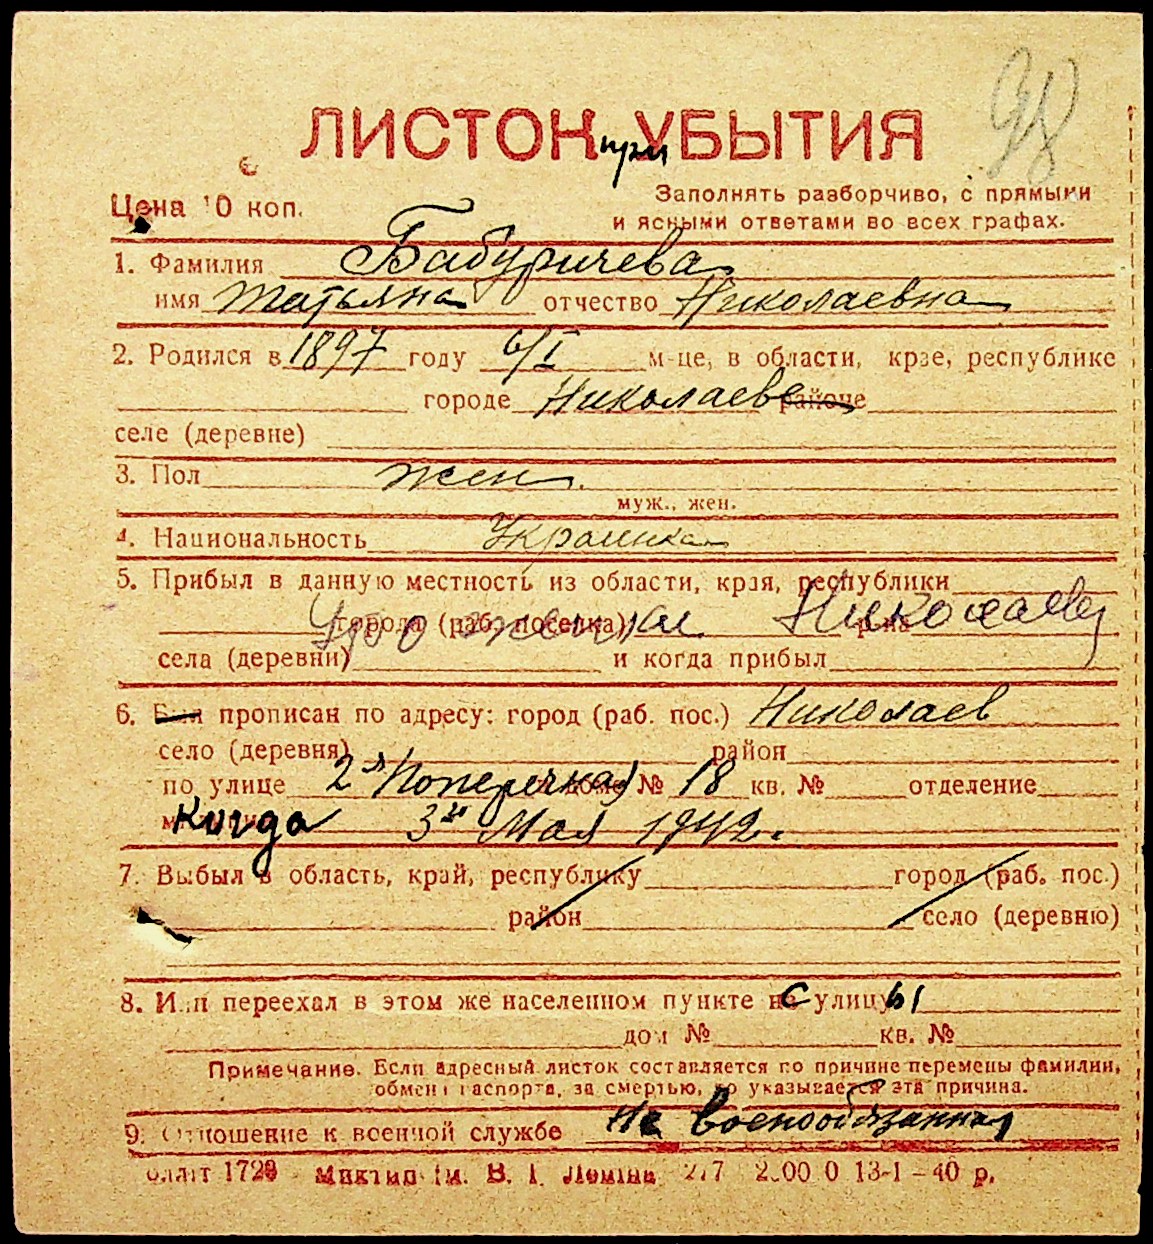 ЛИСТОК УБЫТИЯ
при
Цена 10 коп.
Заполнять разборчиво, с прямыми
и ясными ответами во всех графах.
1. Фамилия Бабуричева
имя Татьяна отчество Николаевна
2. Родился в 1897 году 6/I м-це, в области, крае, республике
городе Николаеве районе
селе (деревне)
3. Пол жен.
муж., жен.
4. Национальность Украинка
5. Прибыл в данную местность из области, края, республики
города (раб. поселка) Уроженка р-на Николаев
села (деревни) и когда прибыл
6. Был прописан по адресу: город (раб. пос.) Николаев
село (деревня) район
по улице 2я Поперечная дом № 18 кв. № отделение
Когда 3го Мая 1942.
7. Выбыл в область, край, республику город (раб. пос.)
район село (деревню)
8. Или переехал в этом же населенном пункте с улицы
дом № кв. №
Примечание. Если адресный листок составляется по причине перемены фамилии,
обмена паспорта, за смертью, то указывается эта причина.
9. Отношение к военной службе Не военообязанная
1720 Миктип ім. В. І. Леніна 13-I-40 р.